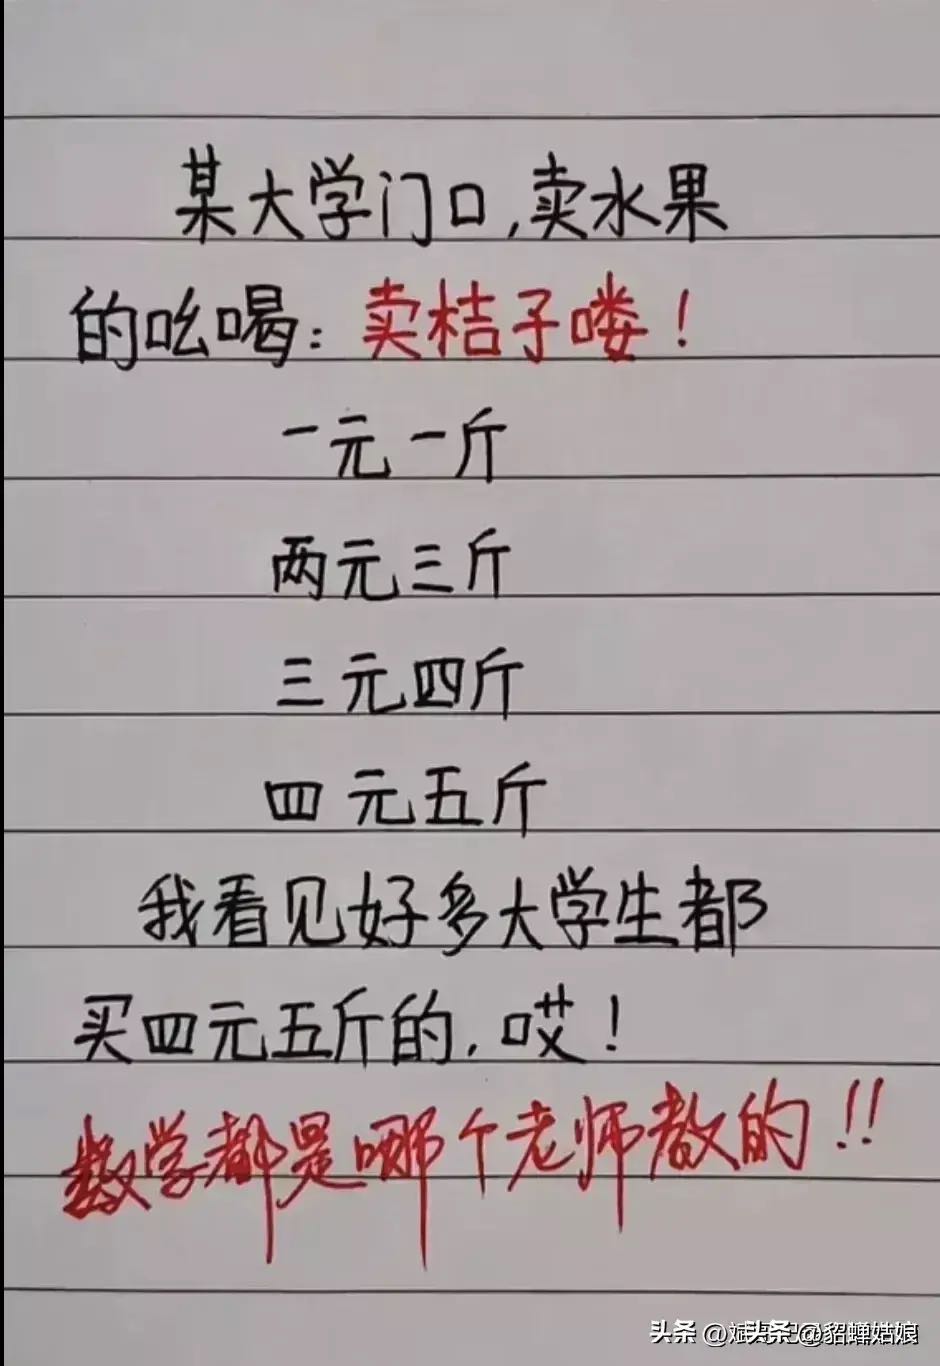 某大学门口,卖水果
的吆喝:卖桔子喽!
一元一斤
两元三斤
三元四斤
四元五斤
我看见好多大学生都
买四元五斤的,哎!
数学都是哪个老师教的!!
头条 @貂蝉姑娘